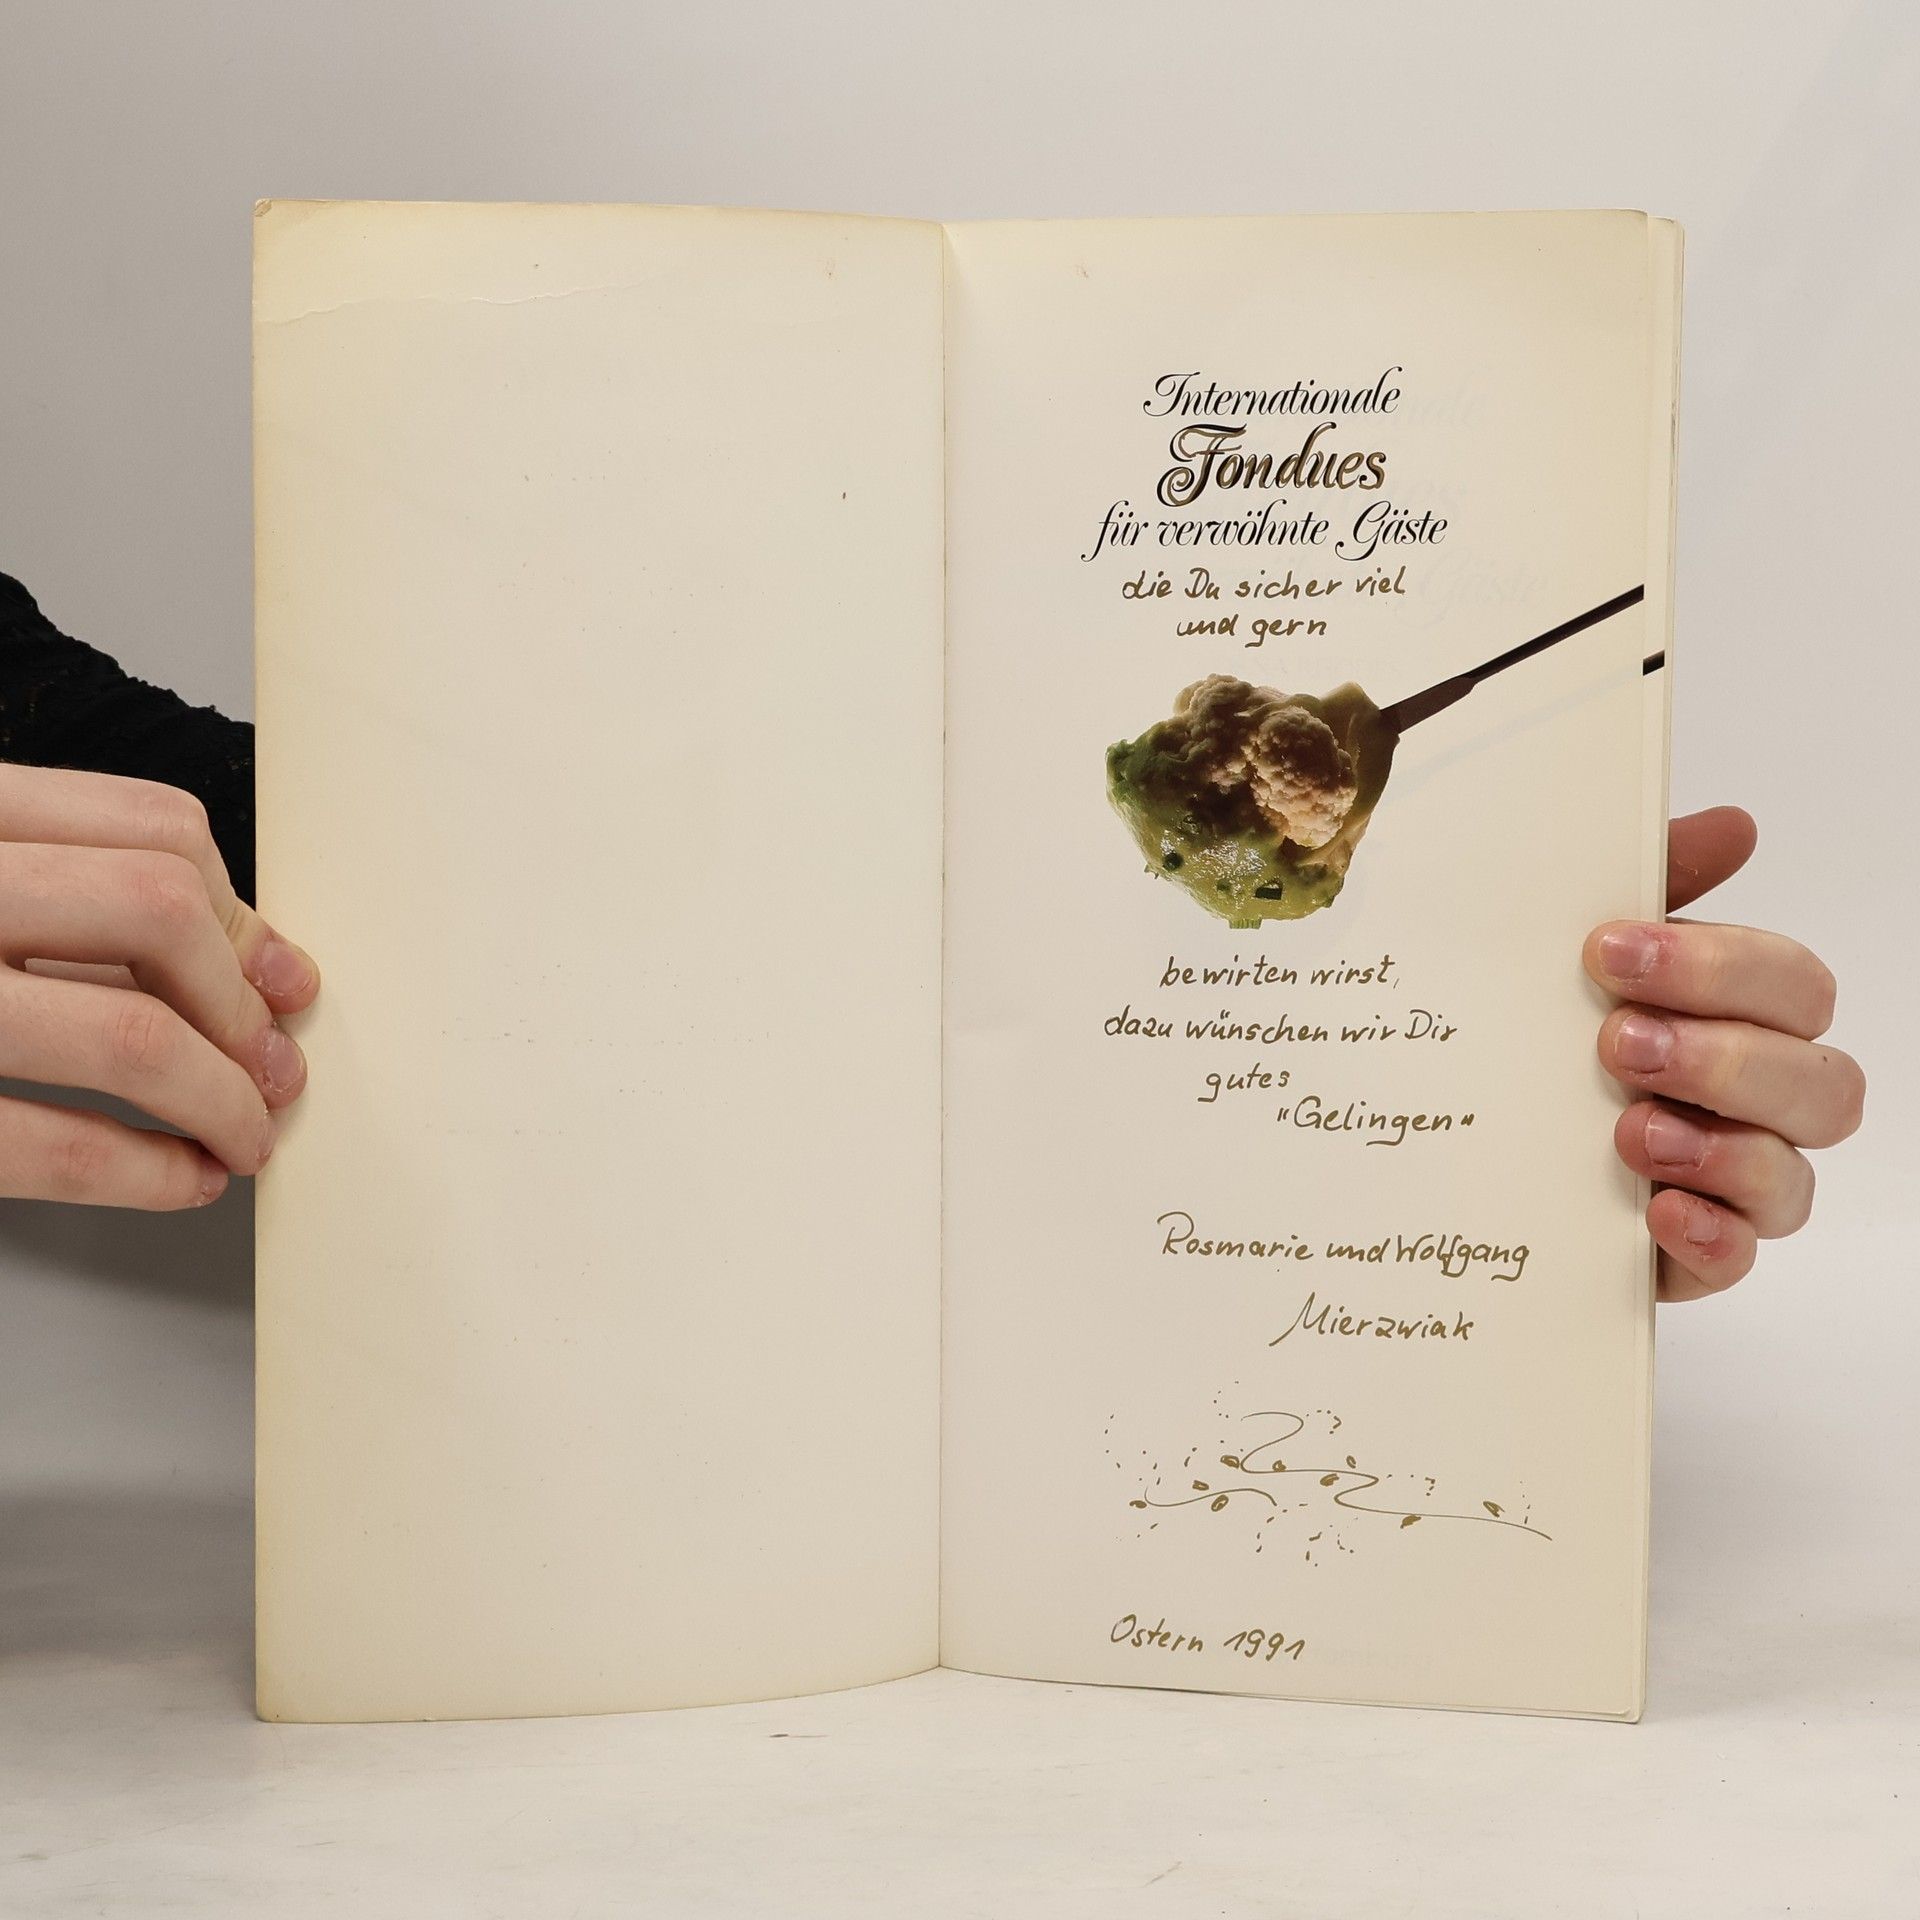 Internationale
Fondues
für verwöhnte Gäste
die Du sicher viel
und gern
bewirten wirst,
dazu wünschen wir Dir
gutes
"Gelingen"
Rosmarie und Wolfgang
Mierzwiak
Ostern 1991